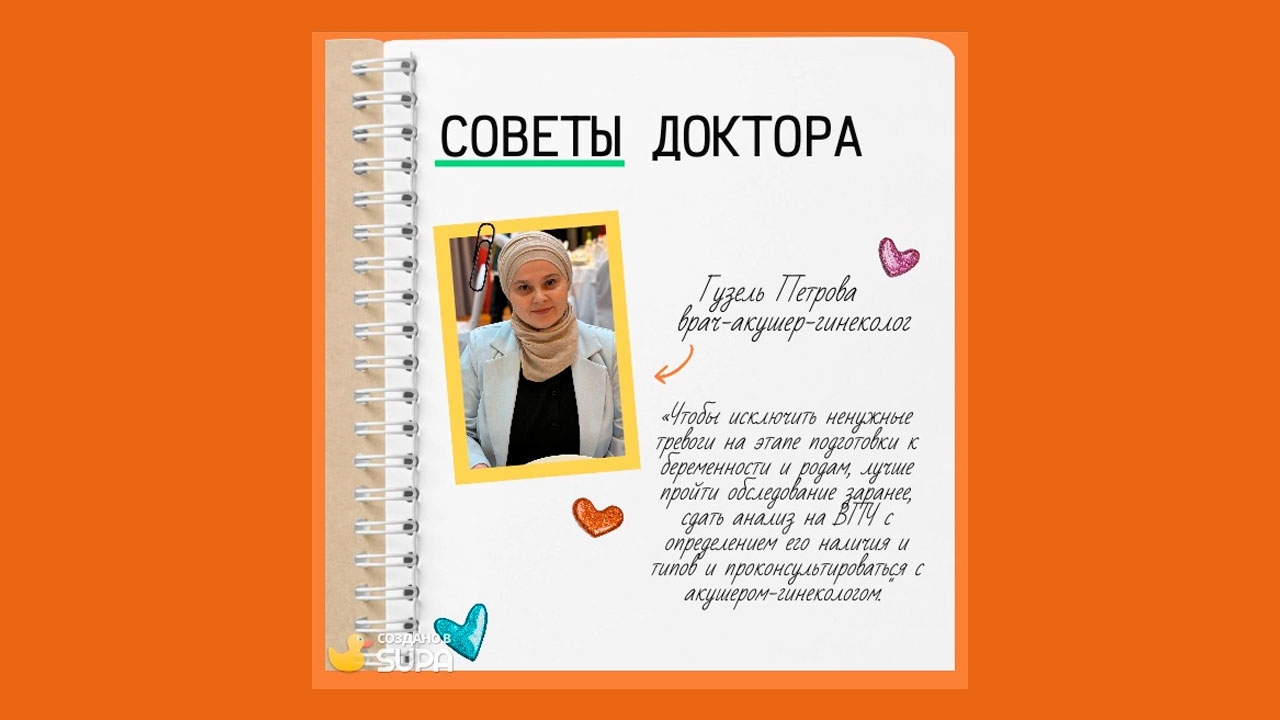 СОВЕТЫ ДОКТОРА
Гузель Петрова
врач-акушер-гинеколог
«Чтобы исключить ненужные
тревоги на этапе подготовки к
беременности и родам, лучше
пройти обследование заранее,
сдать анализ на ВПЧ с
определением его наличия и
типов и проконсультироваться с
акушером-гинекологом."
СОЗДАНО В
SUPA